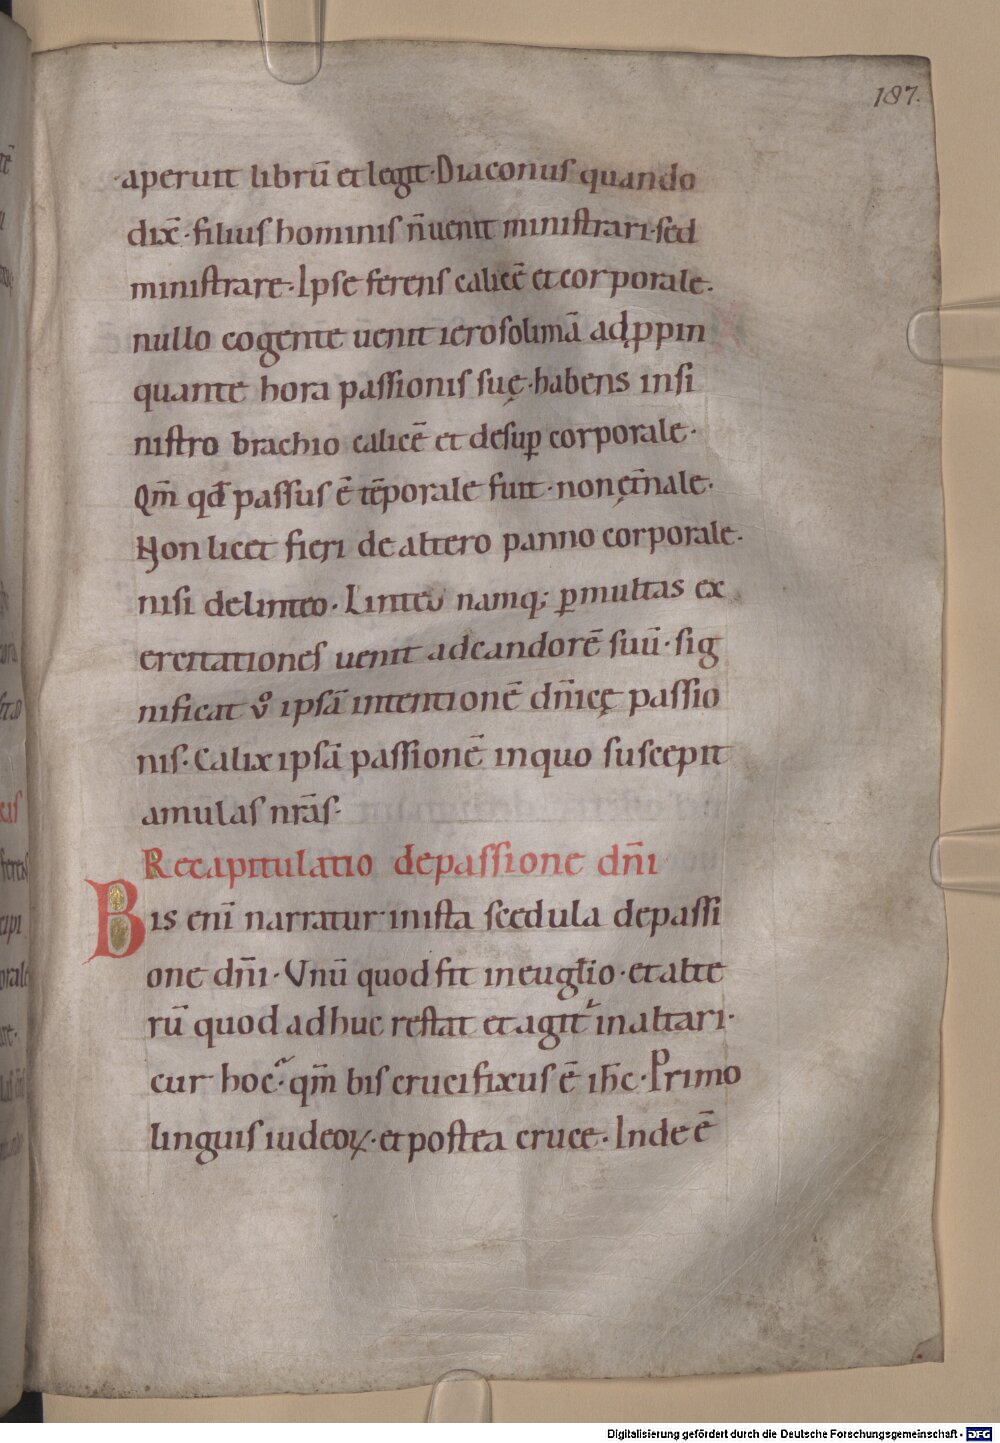 187.
aperuit librū et legit·Diaconus quando
dix̄·filius hominis n̄uenit ministrari·sed
ministrare·Ipse ferens calicē et corporale.
nullo cogente uenit ierosolimā adp̱ppin
quante hora passionis suę·habens insi
nistro brachio calicē et desuꝑ corporale·
Qm̄ qđ passus ē tēporale fuit·non ęt̄nale·
Non licet fieri de altero panno corporale·
nisi delinteo·Linteū namq; ꝑmultas ex
ercitationes uenit adcandorē suū·sig
nificat v̊ ipsā intentionē dn̄icę passio
nis·Calix ipsā passionē inquo suscepit
amulas nr̄as·
Recapitulatio depassione dn̄i
Bis eni̅ narratur inista scedula depassi
one dn̄i·Vnū quod fit in eugl̄io·et alte
rū quod adhuc restat et agit᷑ inaltari·
cur hoc·qm̄ bis crucifixus ē ih̄c·Primo
linguis iudeoꝝ·et postea cruce·Inde ē
Digitalisierung gefördert durch die Deutsche Forschungsgemeinschaft - DFG